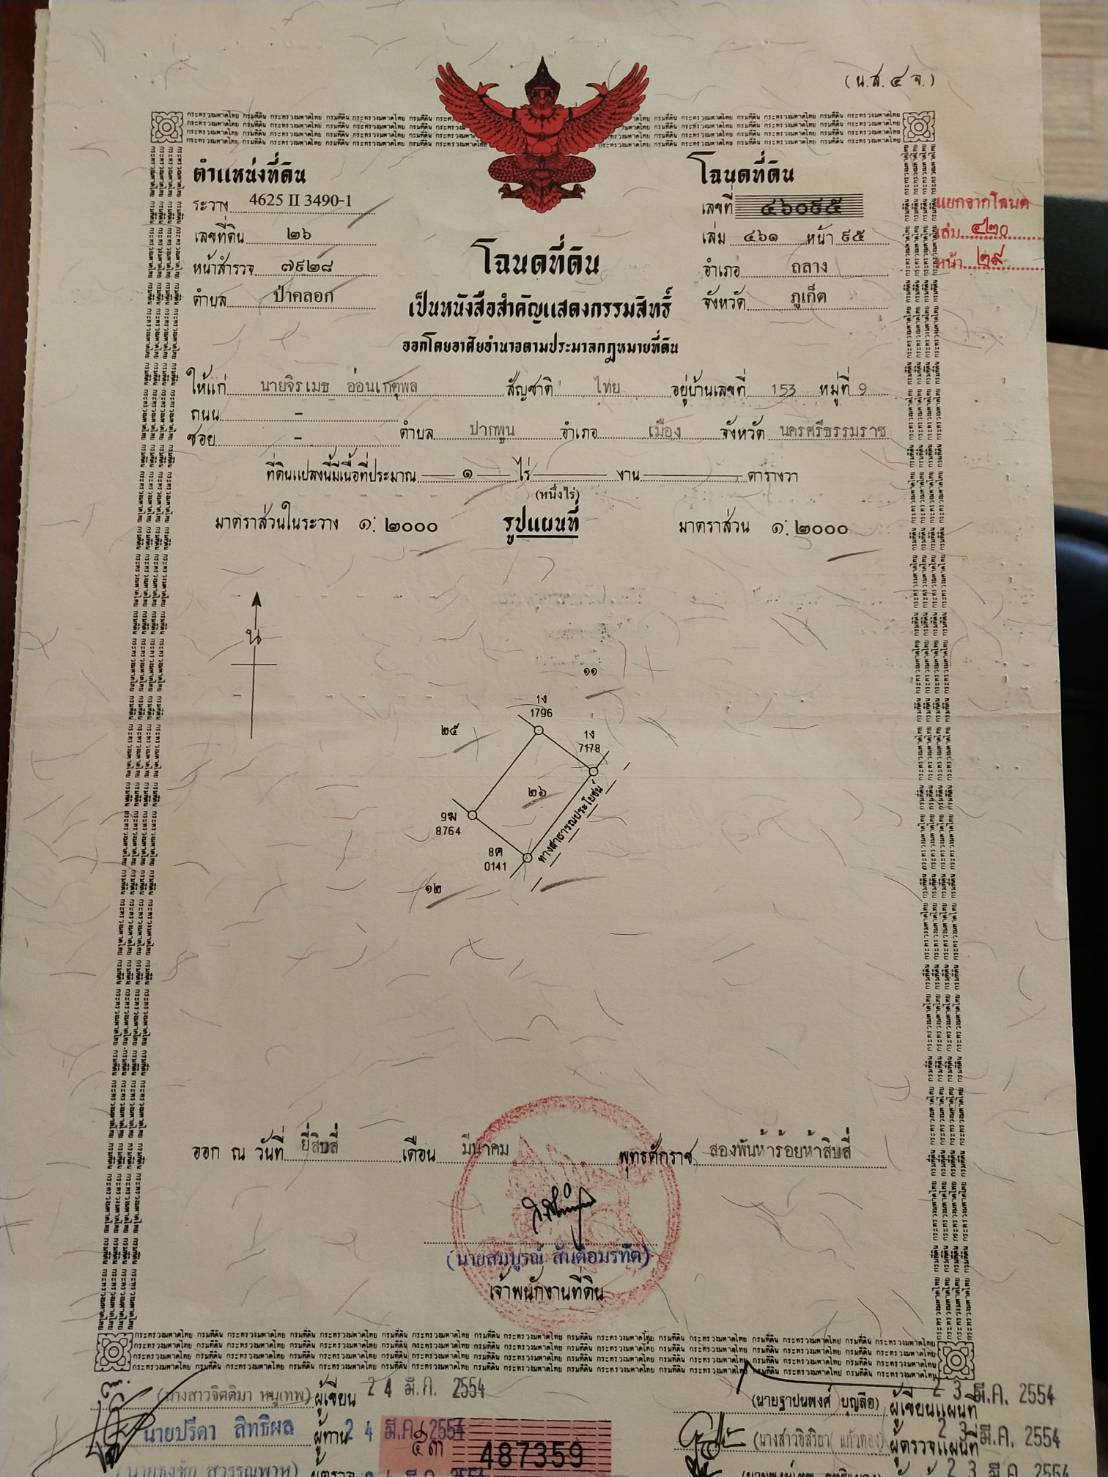 (น.ส.๔ จ.)
ตำแหน่งที่ดิน
ระวาง 4625 II 3490-1
เลขที่ดิน ๒๖
หน้าสำรวจ ๗๙๒๘
ตำบล ป่าคลอก
โฉนดที่ดิน
เลขที่ ๔๖๐๙๕
เล่ม ๔๖๑ หน้า ๙๕
อำเภอ ถลาง
จังหวัด ภูเก็ต
แยกจากโฉนด
เล่ม ๔๒๐
หน้า ๒๙
โฉนดที่ดิน
เป็นหนังสือสำคัญแสดงกรรมสิทธิ์
ออกโดยอาศัยอำนาจตามประมวลกฎหมายที่ดิน
ให้แก่ นายจิรเมธ อ่อนเกตุพล สัญชาติ ไทย อยู่บ้านเลขที่ 153 หมู่ที่ 9
ถนน -
ซอย - ตำบล ปากพูน อำเภอ เมือง จังหวัด นครศรีธรรมราช
ที่ดินแปลงนี้มีเนื้อที่ประมาณ ๑ ไร่ งาน ตารางวา
(หนึ่งไร่)
มาตราส่วนในระวาง ๑:๒๐๐๐ รูปแผนที่ มาตราส่วน ๑:๒๐๐๐
น
๑๑
๒๕
1ง
1796
1ง
7178
๒๖
9ฆ
8764
8ค
0141
ทางสาธารณประโยชน์
๑๒
ออก ณ วันที่ ยี่สิบสี่ เดือน มีนาคม พุทธศักราช สองพันห้าร้อยห้าสิบสี่
(นายสมบูรณ์ สันติอมรทัต)
เจ้าพนักงานที่ดิน
(นางสาวจิตติมา หนูเทพ) ผู้เขียน 24 มี.ค. 2554
นายปรีดา สิทธิผล ผู้ทาน 24 มี.ค. 2554
487359
(นายฐาปนพงศ์ บุญลือ) ผู้เขียนแผนที่ 23 มี.ค. 2554
ผู้ตรวจแผนที่ 23 มี.ค. 2554